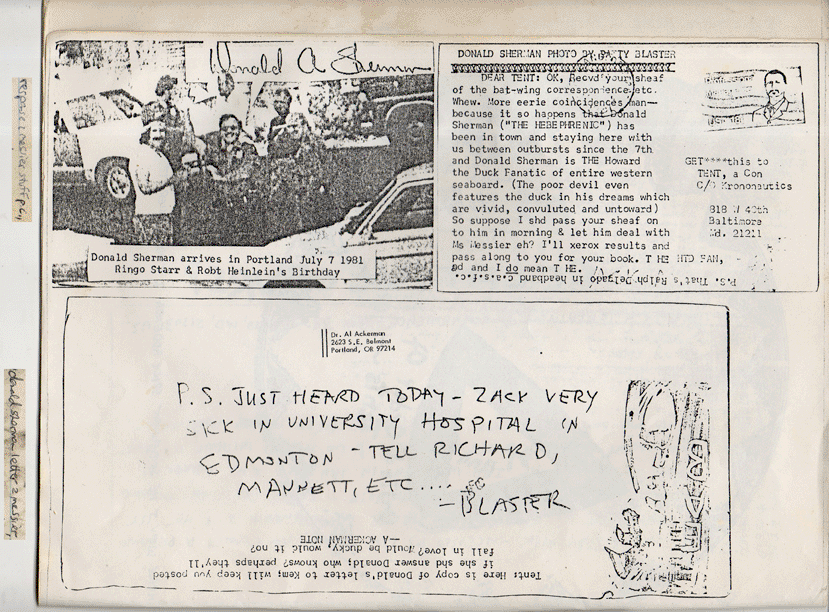 Donald A Sherman
Donald Sherman arrives in Portland July 7 1981
Ringo Starr & Robt Heinlein's Birthday
DONALD SHERMAN PHOTO BY PATTY BLASTER
DEAR TENT: OK, Recvd your sheaf
of the bat-wing correspondence etc.
Whew. More eerie coincidences man—
because it so happens that Donald
Sherman ("THE HEBEPHRENIC") has
been in town and staying here with
us between outbursts since the 7th
and Donald Sherman is THE Howard
the Duck Fanatic of entire western
seaboard. (The poor devil even
features the duck in his dreams which
are vivid, convuluted and untoward)
So suppose I shd pass your sheaf on
to him in morning & let him deal with
Ms Messier eh? I'll xerox results and
pass along to you for your book. T HE HTD FAN,
ad and I do mean T HE.
P.S. That's Ralph Delgado in headband c.a.s.f.c.
GET****this to
TENT, a Con
C/O Krononautics
818 W 40th
Baltimore
Md. 21211
Dr. Al Ackerman
2623 S.E. Belmont
Portland, OR 97214
P.S. JUST HEARD TODAY - ZACK VERY
SICK IN UNIVERSITY HOSPITAL IN
EDMONTON - TELL RICHARD,
MANNETT, ETC....
- BLASTER
Tent: Here is copy of Donald's letter to Kem; will keep you posted
if she shd answer Donald; who knows? perhaps they'll
fall in love? Would be ducky, would it no?
—A ACKERMAN NOTE
donald sherman letter 2 messier,